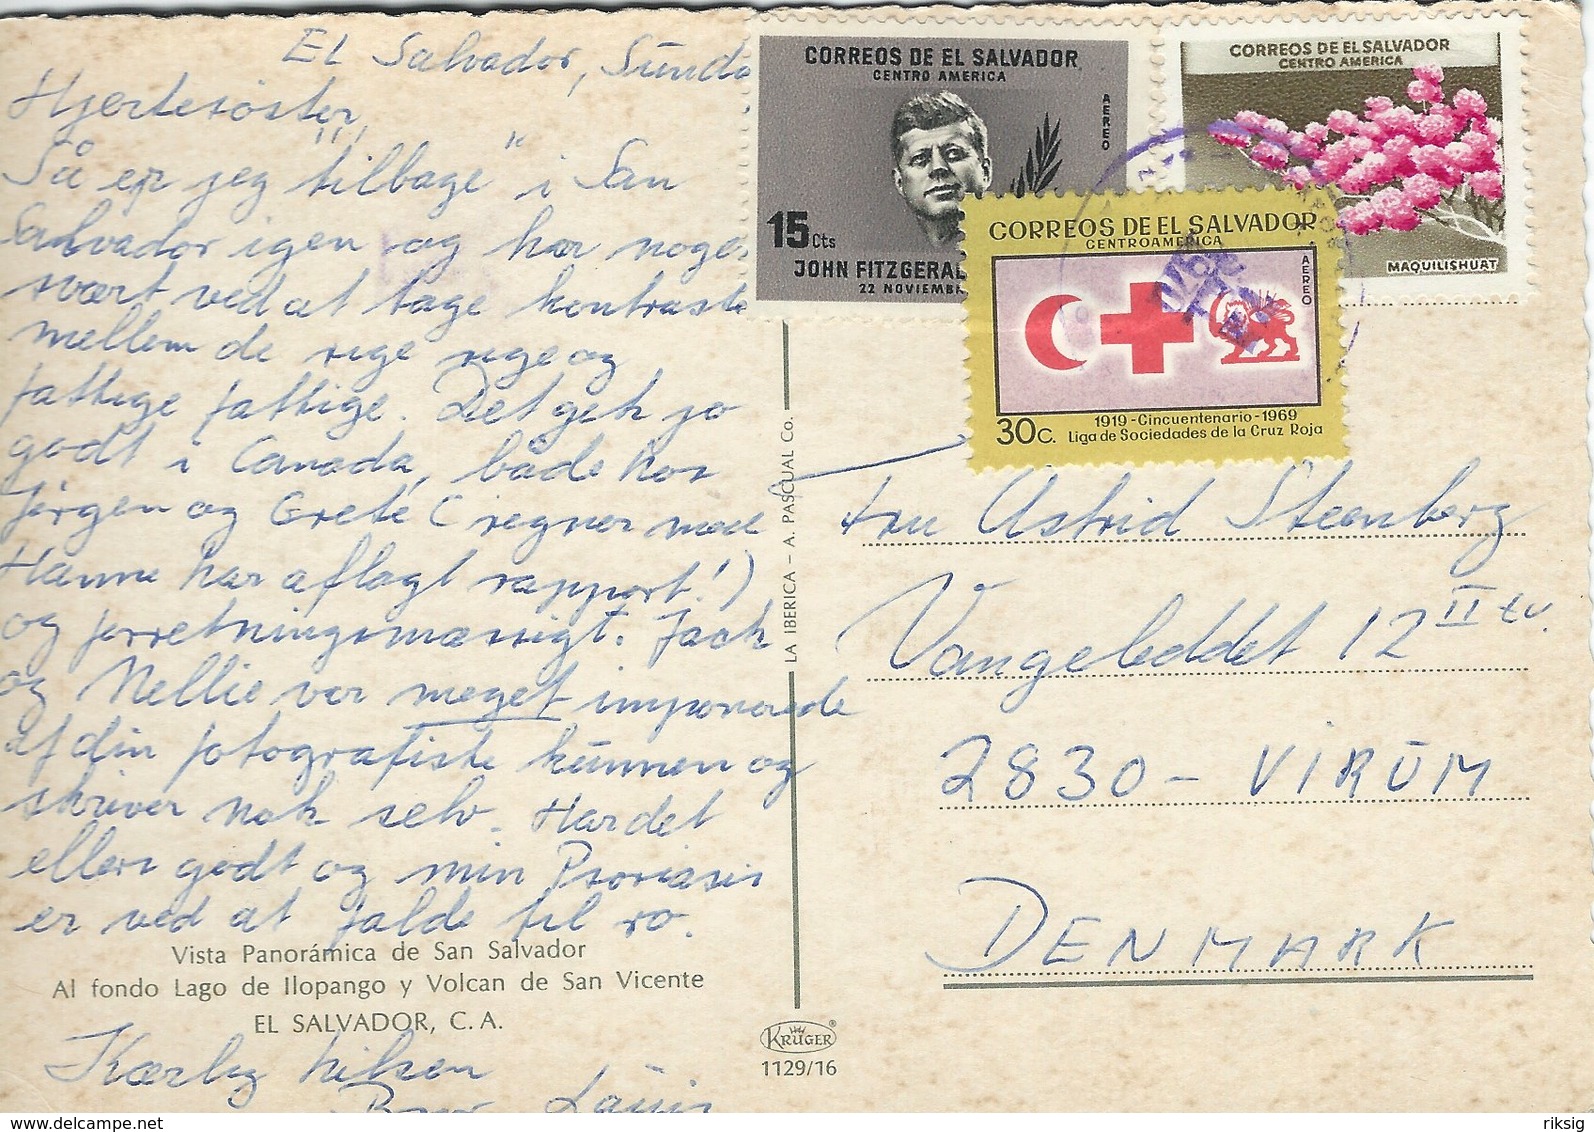 El Salvador, Sunda
Hjertesöster,
Så er jeg "tilbage" i San
Salvador igen og har noget
svært ved at tage kontraste
mellem de rige rige og
fattige fattige. Det gik jo
godt i Canada, både hos
Jörgen og Grete (regner med
Hanne har aflagt rapport!)
og forretningsmæssigt. Jack
og Nellie var meget imponerede
af din fotografiske kunnen og
skriver nok selv. Har det
ellers godt og min Psoriasis
er ved at falde til ro.
Vista Panorámica de San Salvador
Al fondo Lago de Ilopango y Volcan de San Vicente
EL SALVADOR, C.A.
Kærlig hilsen
Bror Louis
LA IBERICA - A. PASCUAL Co.
KRÜGER®
1129/16
CORREOS DE EL SALVADOR
CENTRO AMERICA
AEREO
15 Cts
JOHN FITZGERAL
22 NOVIEMBR
CORREOS DE EL SALVADOR
CENTRO AMERICA
MAQUILISHUAT
CORREOS DE EL SALVADOR
CENTROAMERICA
AEREO
1919-Cincuentenario-1969
30C. Liga de Sociedades de la Cruz Roja
Fru Astrid Steenberg
Vangeleddet 12 II tv.
2830 - VIRŪM
DENMARK
www.delcampe.net
riksig